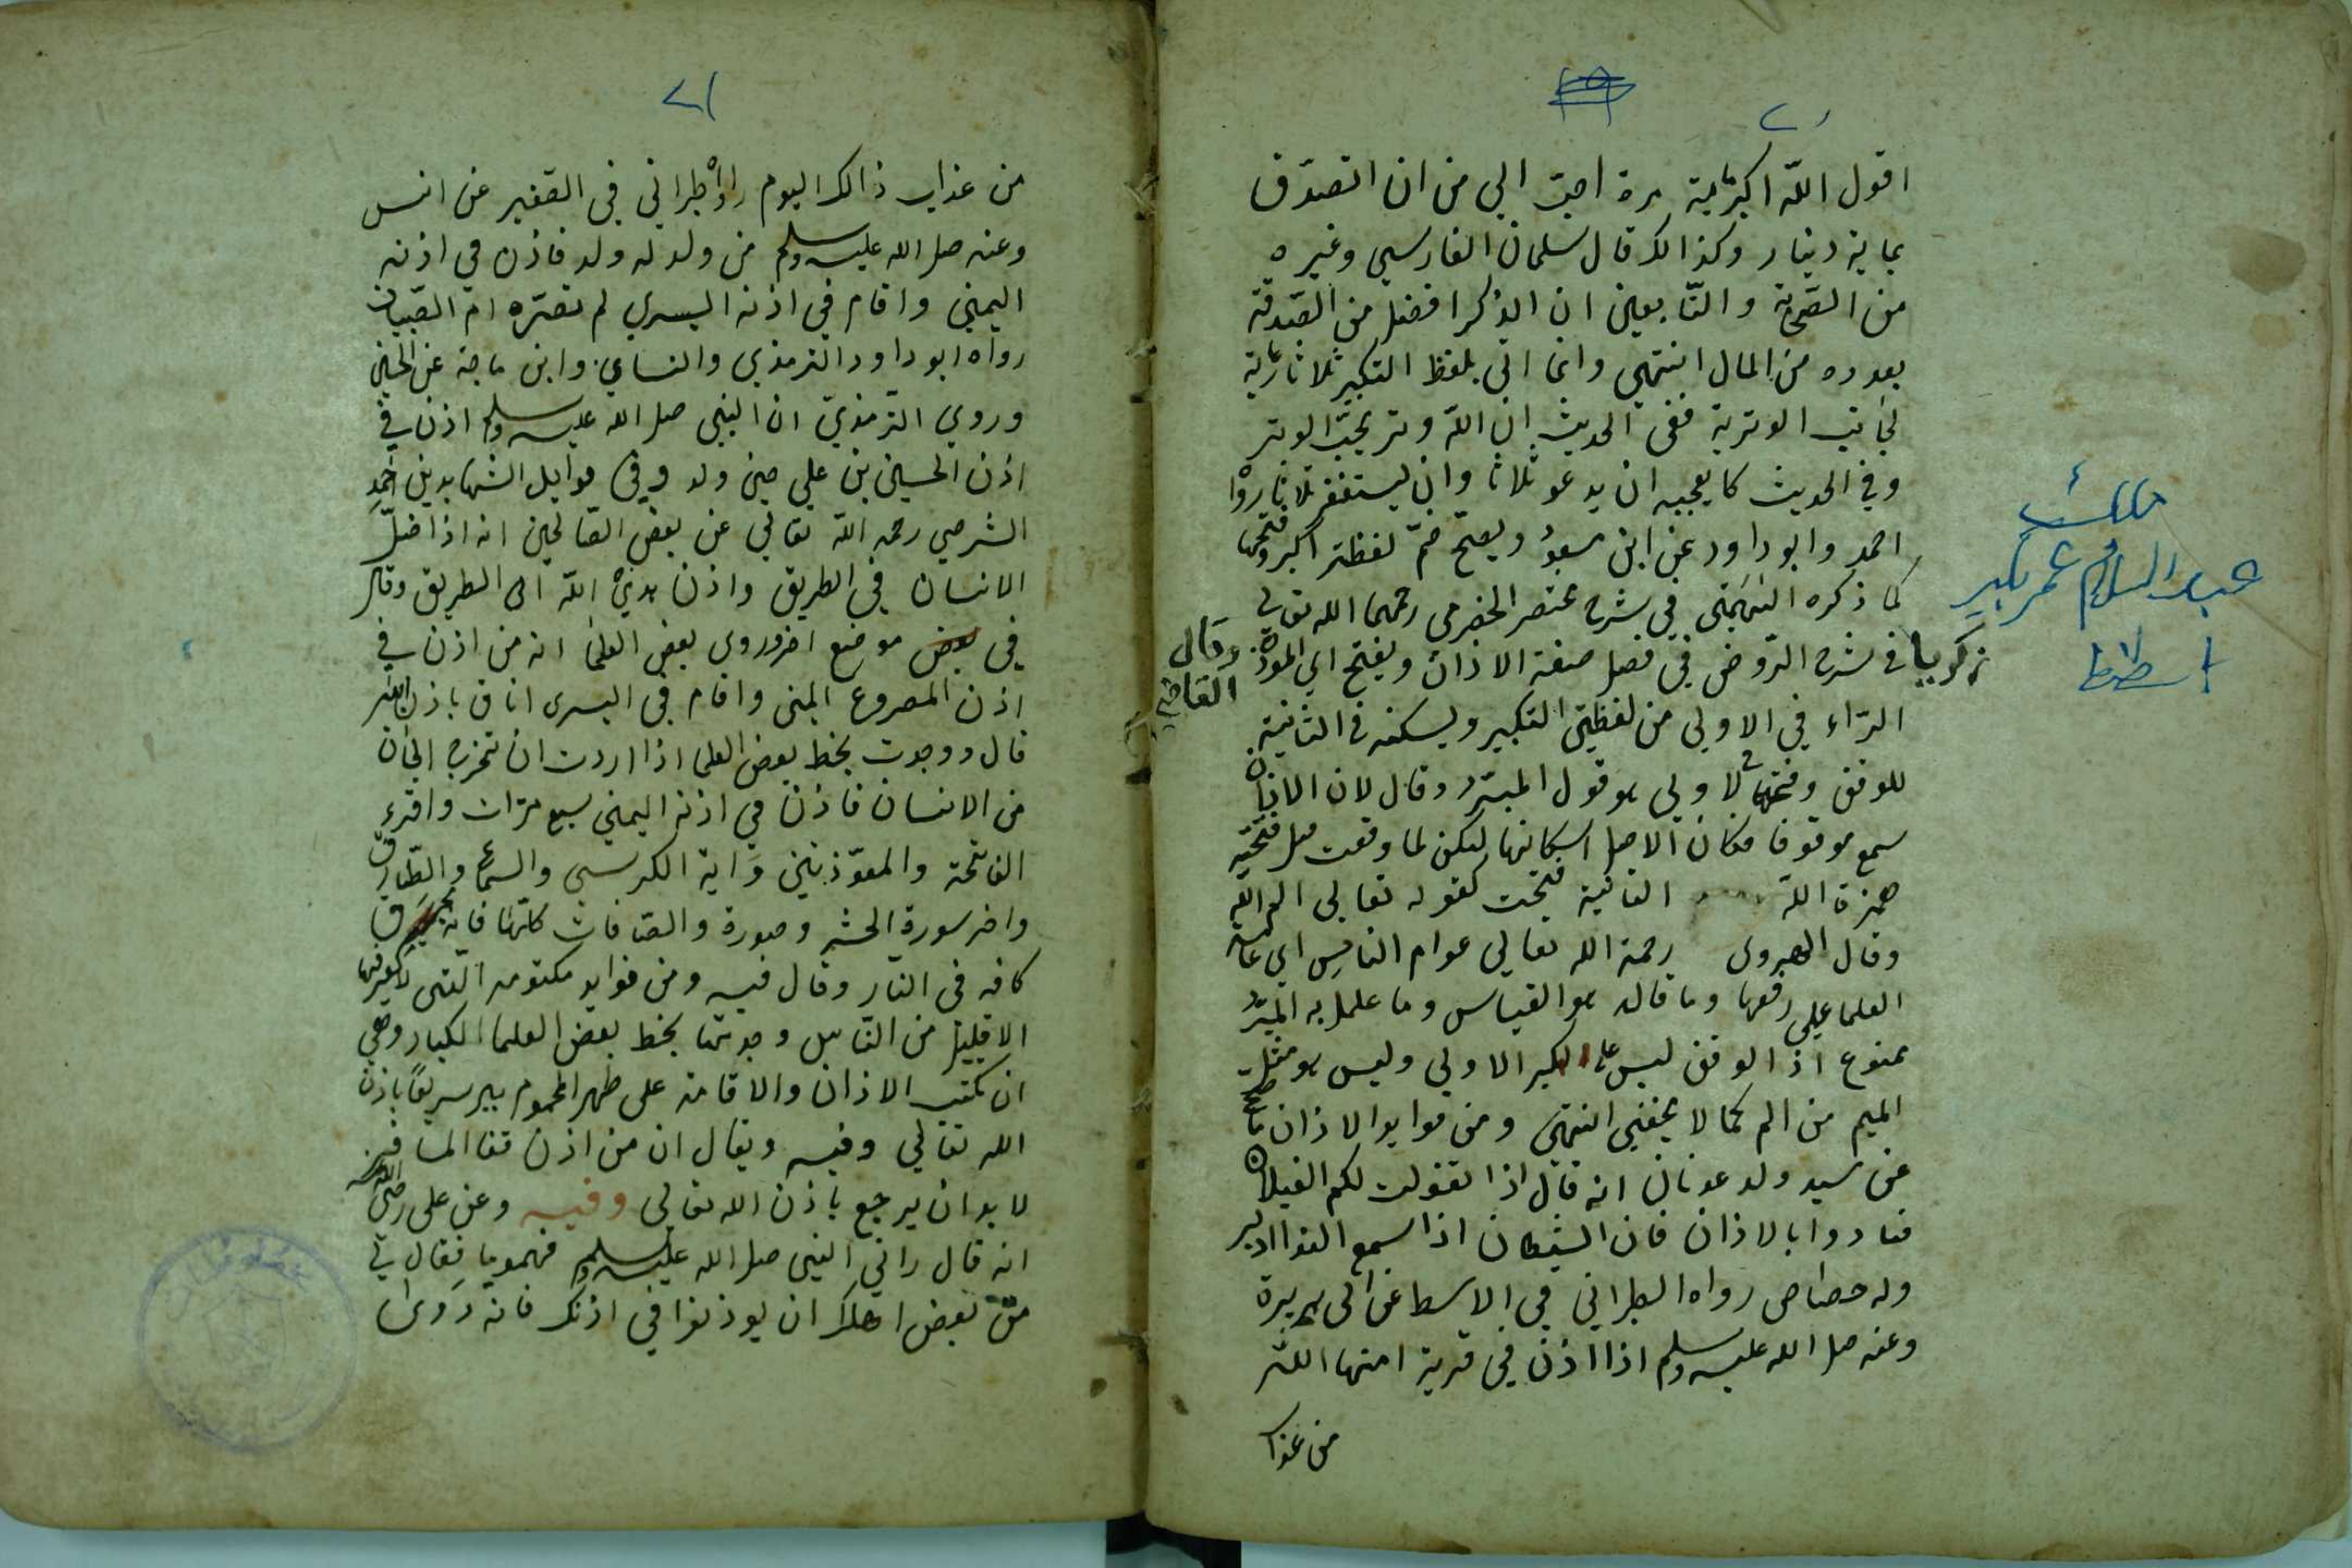 ٢٠
اقول الله اكبر مية مرة احبّ الي من ان اتصدّق
بماية دينار وكذالك قال سلمان الفارسي وغيره
من الصّحابة والتّابعين ان الذكر افضل من الصّدقة
بعدده من المال انتهى وانما اتى بلفظ التكبير ثلاثا رعاية
لجانب الوترية ففى الحديث ان الله وتر يحبّ الوتر
وفي الحديث كا يعجبه ان يدعو ثلاثا وان يستغفر ثلاثا رواه
احمد وابو داود عن ابن مسعود ويصحّ ضمّ لفظتر اكبر وفتحها
كما ذكره في شرح مختصر الحضرمي رحمهما الله تعالى
وقال القاضي
زكريا في شرح الرّوض في فصل صفة الاذان ويفتح اي المؤذن
الرّاء في الاولى من لفظتي التكبير ويسكنه في الثانية
للوقف وفتحها في الاولى هو قول المبرّد وقال لان الاذان
سمع موقوفا فكان الاصل اسكانها لكن لما وقعت قبل فتحة
همزة الله الثانية فتحت كقوله تعالى الم الله
وقال الهروى رحمة الله تعالى عوام الناس اي عامة
العلما على رفعها وما قاله هو القياس وما علل به المبرّد
ممنوع اذ الوقف ليس على اكبر الاولى وليس هو مثل
الميم من الم كما لا يخفى انتهى ومن فوايد الاذان ما صحّ
عن سيد ولد عدنان انه قال اذا تغولت لكم الغيلان
فنادوا بالاذان فان الشيطان اذا سمع الندا ادبر
وله حصاص رواه الطبراني في الاسط عن ابى هريرة
وعنه صلى الله عليه وسلم اذا اذن في قرية امنها الله
من عذا
عبد السلام عمر بكير
٢١
من عذاب ذالك اليوم رواه طبراني في الصغير عن انس
وعنه صلى الله عليه وسلم من ولد له ولد فاذن في اذنه
اليمنى واقام في اذنه اليسرى لم تضرّه امّ الصّبيان
رواه ابو داود الترمذي والنساي وابن ماجة عن الحسين
وروي الترمذيّ ان النبى صلى الله عليه وسلم اذن في
اذن الحسين بن علي حين ولد وفى فوايد الشهابدين احمد
الشرجي رحمه الله تعالى عن بعض الصّالحين انه اذا ضلّ
الانسان في الطريق واذن هديه الله الى الطريق وقال
فى بعض موضع اخر وروى بعض العلما انه من اذن في
اذن المصروع اليمنى واقام فى اليسرى افاق باذن الله
قال ووجدت بخط بعض العلما اذا اردت ان تخرج الجان
من الانسان فاذن في اذنه اليمنى سبع مرّات واقرء
الفاتحة والمعوّذتين وَاية الكرسي والسّما والطّارق
واخر سورة الحشر وصورة والصّافات كلّها فانه يحترق
كافه فى النّار وقال فيه ومن فوايد مكتومه التى لا يعرفها
الا قليل من النّاس وجدتها بخط بعض العلما الكبار وهي
ان يكتب الاذان والاقامة على ظهر المحموم يبر سريعًا باذن
الله تعالى وفيه ويقال ان من اذن قفا المسافر
لا بد ان يرجع باذن الله تعالى وفيه وعن على رضي الله عنه
انه قال راني النبى صلى الله عليه وسلم مهموما فقال لي
مُرّ بعض اهلك ان يوذنوا في اذنك فانه دَوى